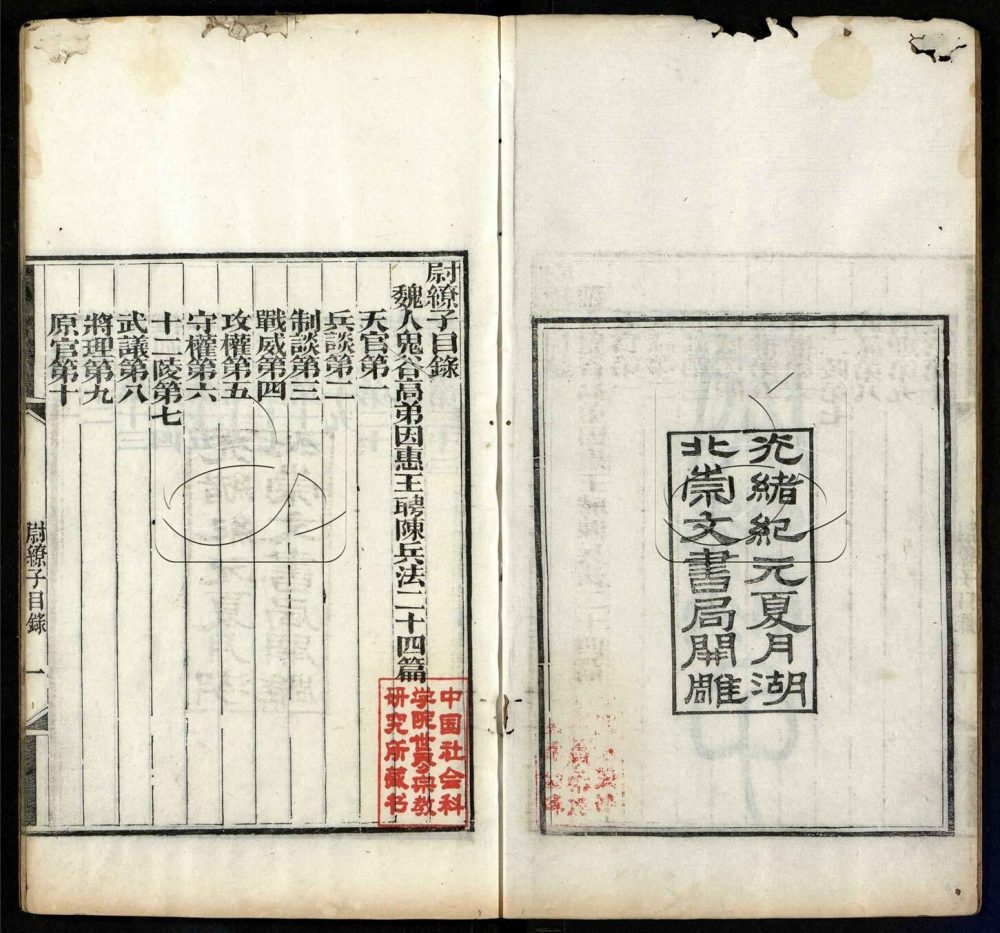 光緒紀元夏月湖
北崇文書局開雕
尉繚子目錄
魏人鬼谷高弟因惠王聘陳兵法二十四篇
天官第一
兵談第二
制談第三
戰威第四
攻權第五
守權第六
十二陵第七
武議第八
將理第九
原官第十
尉繚子目錄
一
中国社会科
学院世界宗教
研究所藏书